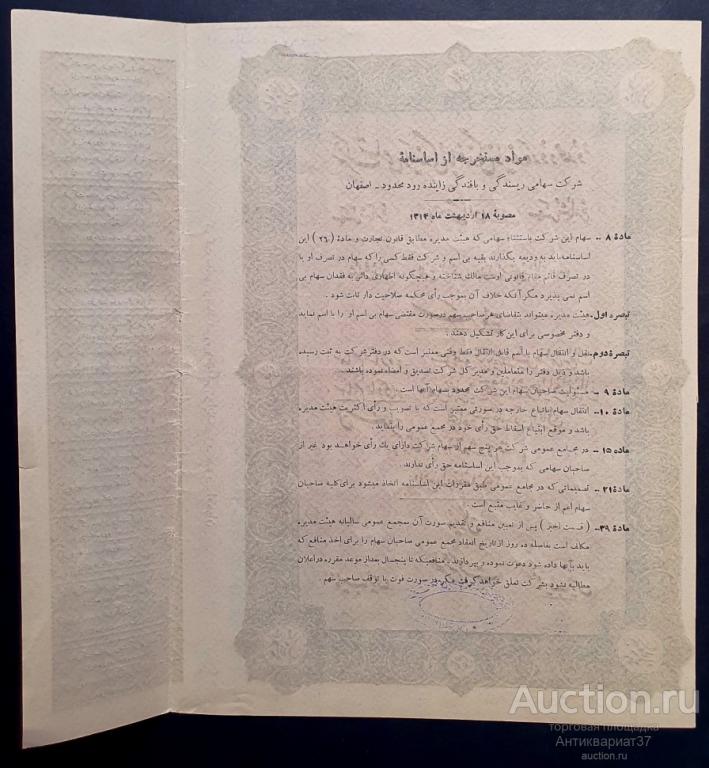 مواد مستخرجه از اساسنامهٔ
شرکت سهامی ریسندگی و بافندگی زاینده رود محدود - اصفهان
مصوبهٔ ۱۸ اردیبهشت ماه ۱۳۱۴
مادهٔ ۸ -- سهام این شرکت باستثناء سهامی که هیئت مدیره مطابق قانون تجارت و مادهٔ ( ۲۶ ) این
اساسنامه باید به ودیعه بگذارند بقیه بی اسم و شرکت فقط کسی را که سهام در تصرف او یا
در تصرف قائم مقام قانونی اوست مالک شناخته و هیچگونه اظهاری دائر به فقدان سهام بی
اسم نمی پذیرد مگر آنکه خلاف آن بموجب رأی محکمه صلاحیت دار ثابت شود .
تبصره اول - هیئت مدیره میتواند بتقاضای هر صاحب سهم در صورت مقتضی سهام بی اسم او را با اسم نماید
و دفتر مخصوصی برای این کار تشکیل دهند .
تبصره دوم - نقل و انتقال سهام با اسم قابل انتقال فقط وقتی معتبر است که در دفتر شرکت به ثبت رسیده
باشد و ذیل دفتر را متعاملین و مدیر کل شرکت تصدیق و امضاء نموده باشند .
مادهٔ ۹ -- مسئولیت صاحبان سهام این شرکت محدود بسهام آنها است .
مادهٔ ۱۰ -- انتقال سهام باتباع خارجه در صورتی معتبر است که با تصویب و رأی اکثریت هیئت مدیره
باشد و موقع ابتیاع اسقاط حق رأی خود در مجمع عمومی را بنماید .
ماده ۱۵ -- در مجامع عمومی شرکت هر پنج سهم از سهام شرکت دارای یك رأی خواهد بود غیر از
صاحبان سهامی که بموجب این اساسنامه حق رأی ندارند .
مادهٔ ۲۱ -- تصمیماتی که در مجامع عمومی طبق مقررات این اساسنامه اتخاذ میشود برای کلیه صاحبان
سهام اعم از حاضر و غایب متبع است .
مادهٔ ۳۹ -- ( قسمت اخیر ) پس از تعیین منافع و تقدیم صورت آن بمجمع عمومی سالیانه هیئت مدیره
مکلف است بفاصله ده روز از تاریخ انعقاد مجمع عمومی صاحبان سهام را برای اخذ منافعی که
باید بآنها داده شود دعوت نموده و بپردازند . منافعیکه تا پنجسال بعد از موعد مقرره در اعلان
مطالبه نشود بشرکت تعلق خواهد گرفت مگر در صورت فوت یا توقف صاحب سهم .
Auction.ru
торговая площадка
Антиквариат37
auction.ru